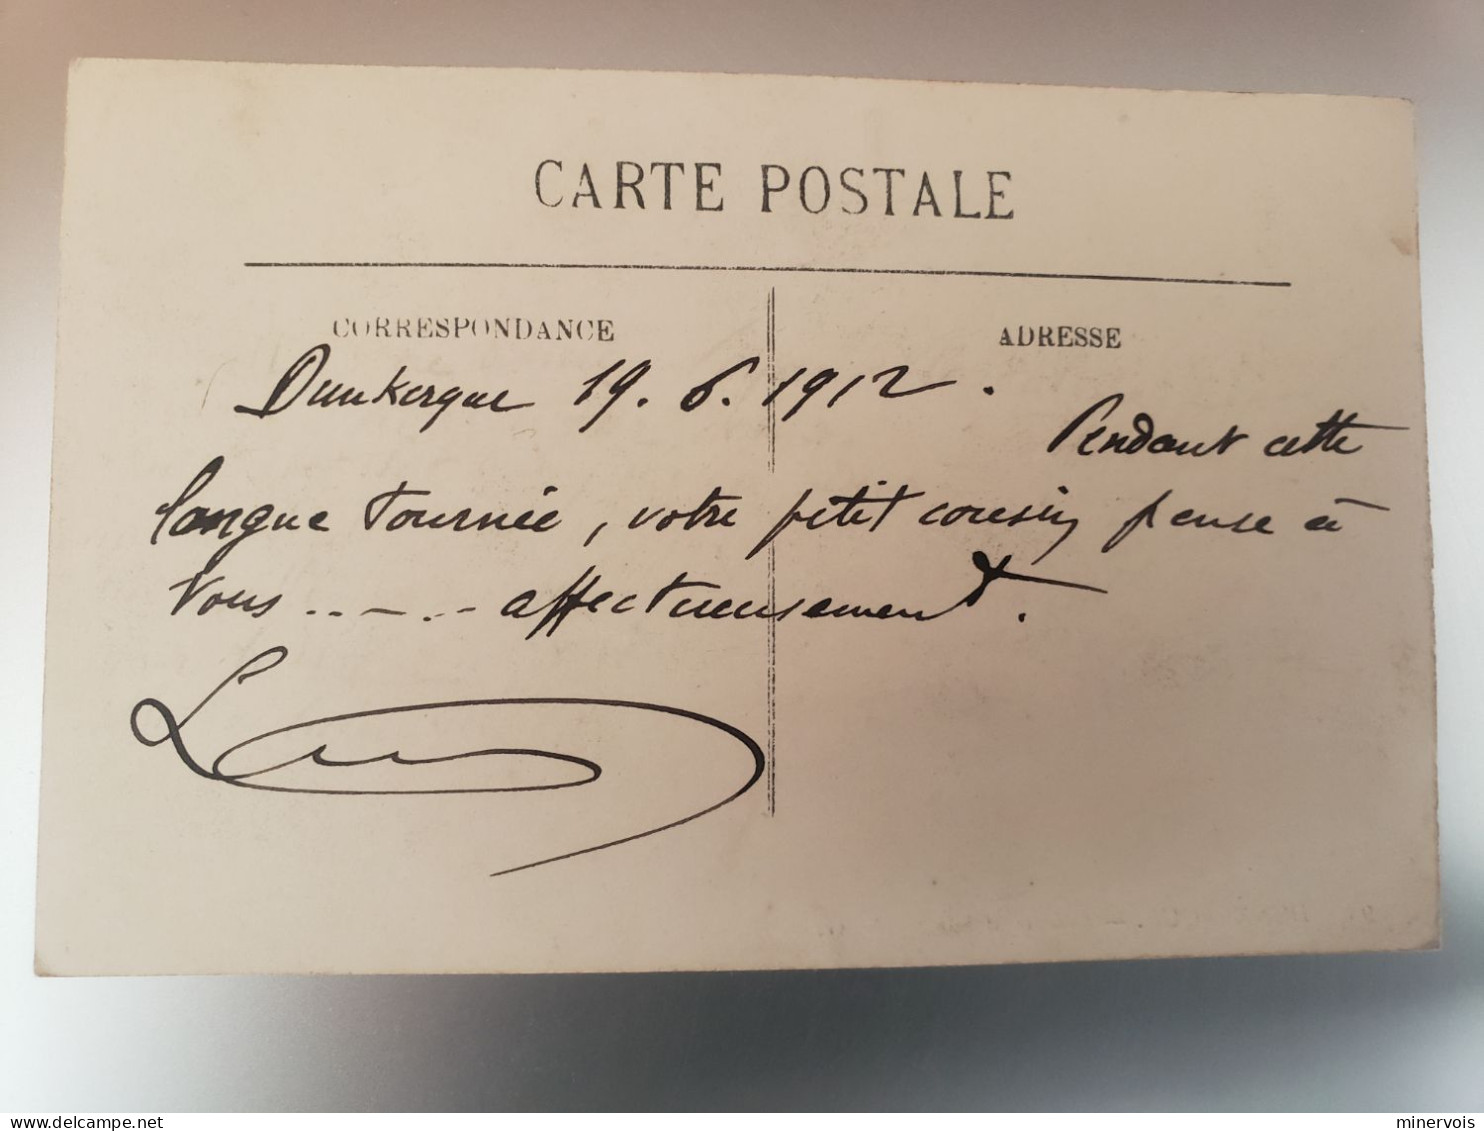 CARTE POSTALE
CORRESPONDANCE
ADRESSE
Dunkerque 19. 6. 1912.
Pendant cette
longue tournée, votre petit cousin pense à
vous ..-.- affectueusement.
minervois